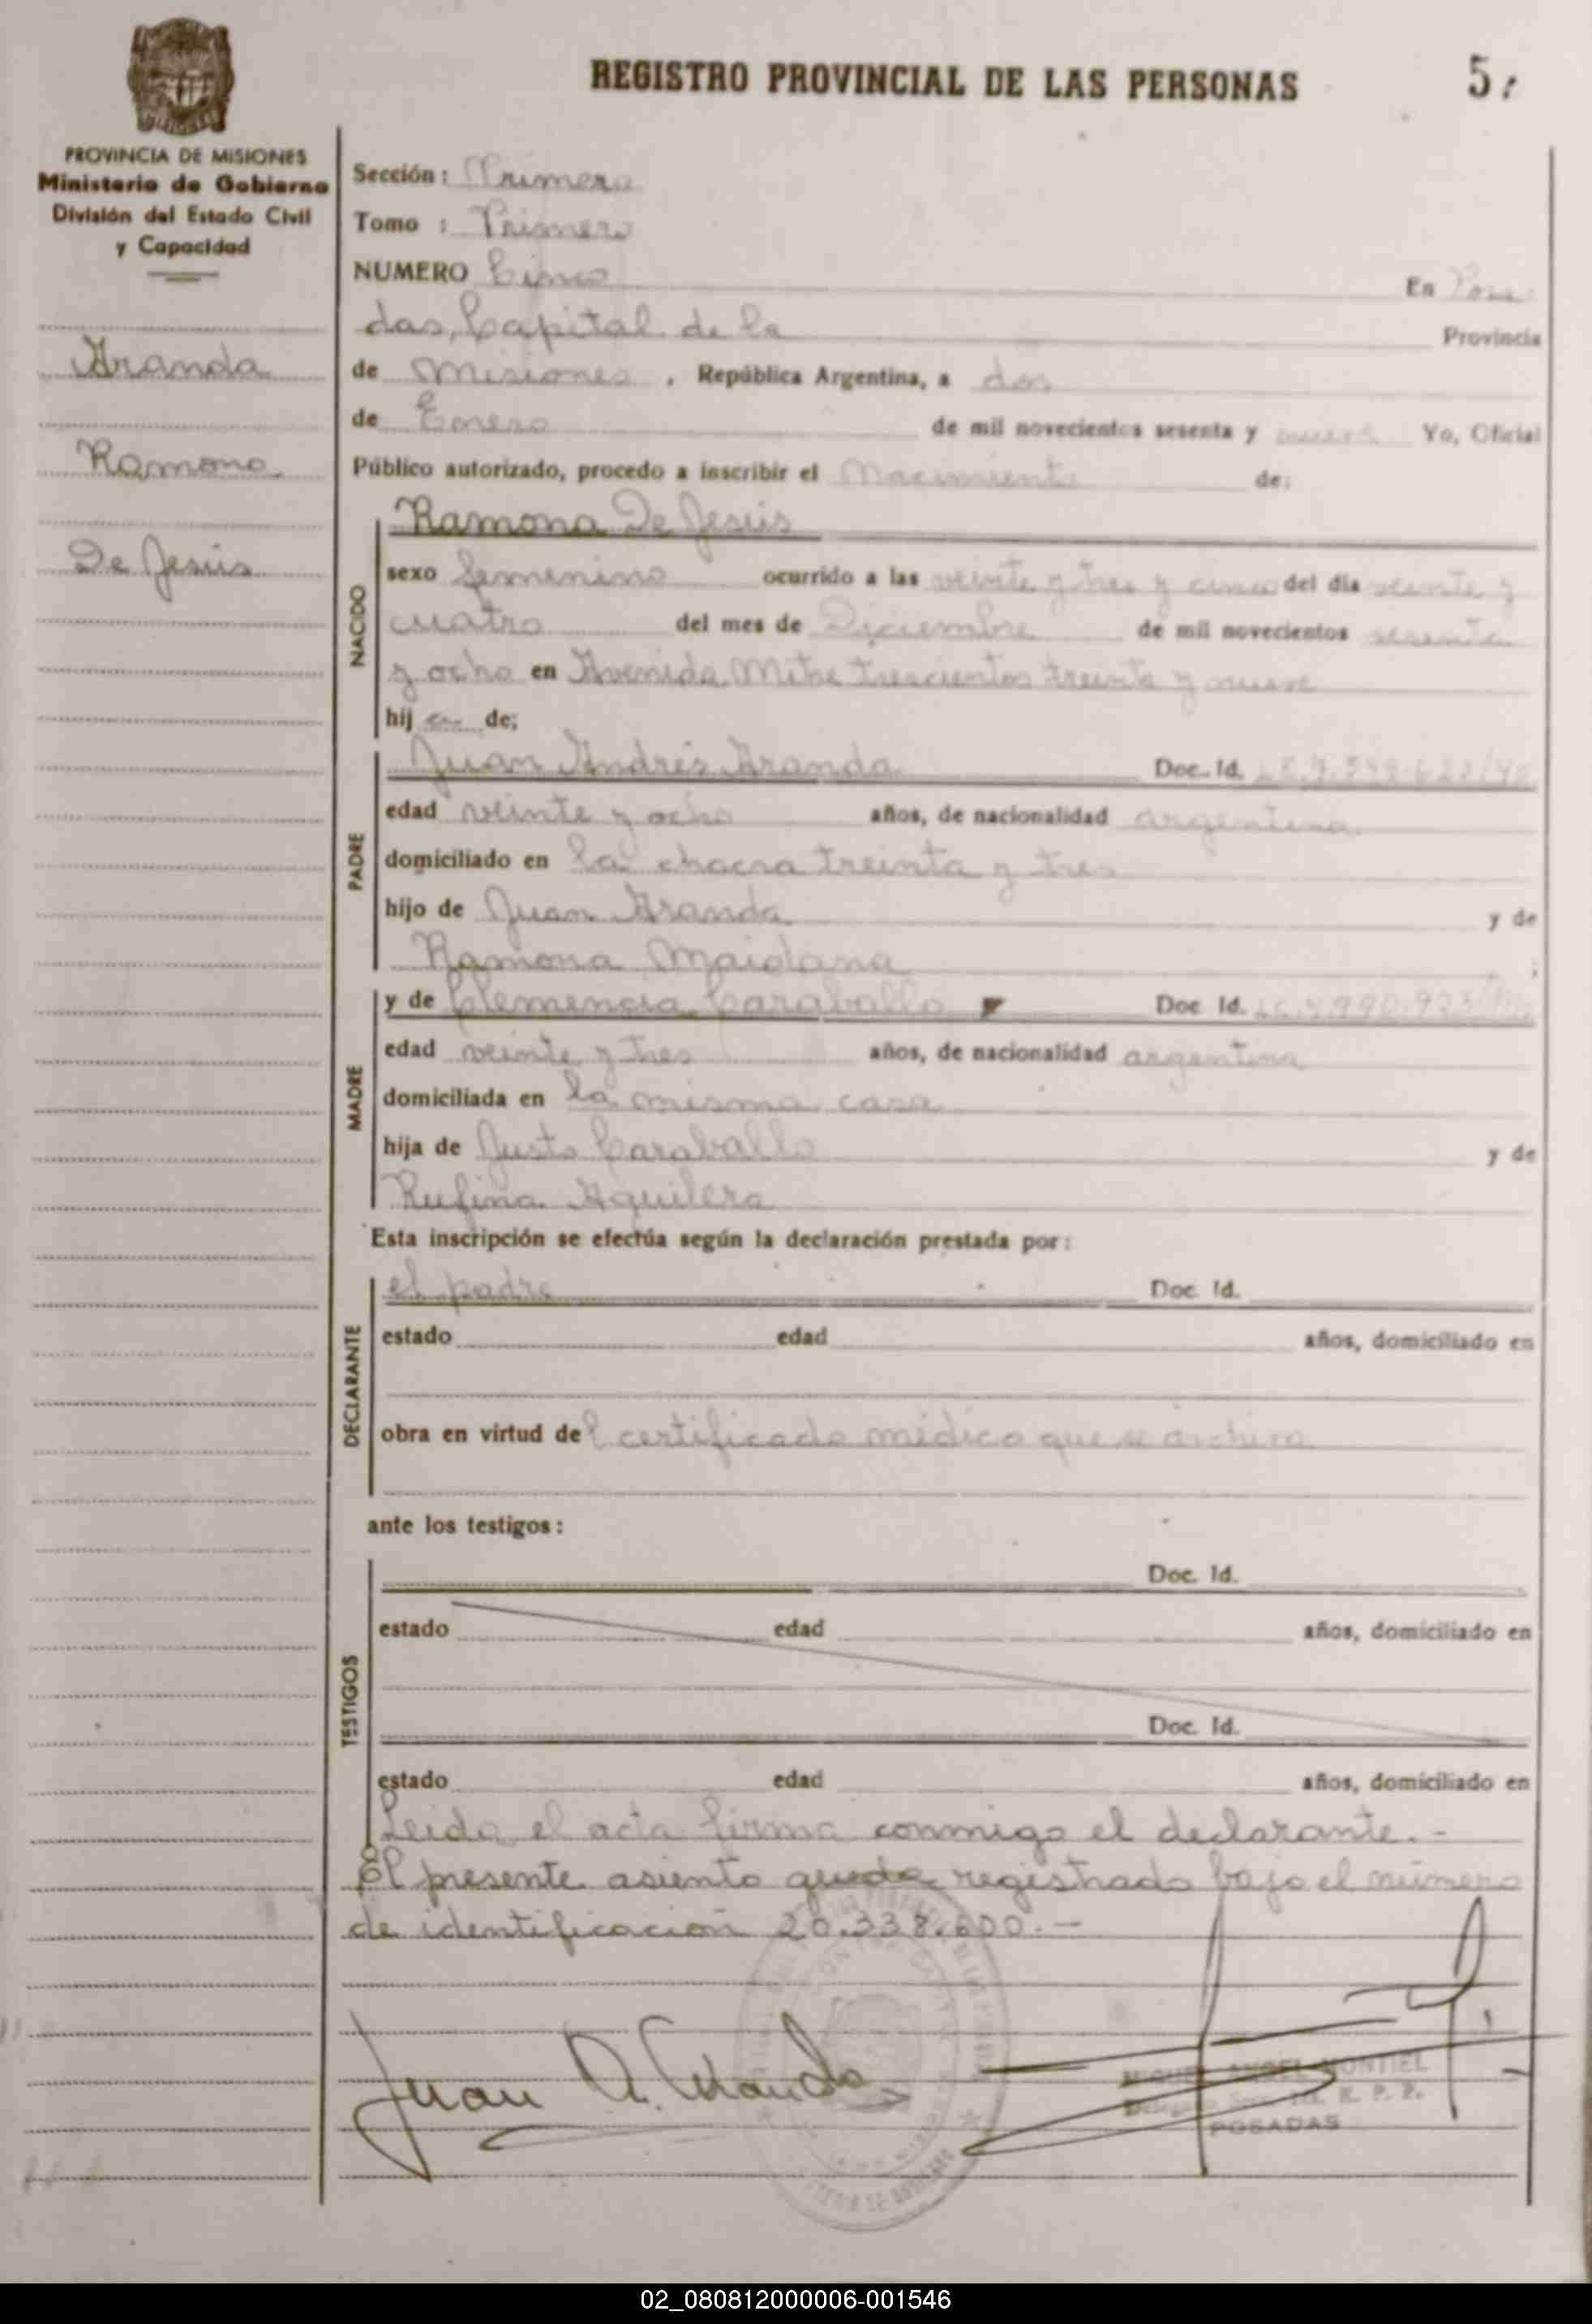 REGISTRO PROVINCIAL DE LAS PERSONAS
5
PROVINCIA DE MISIONES
Ministerio de Gobierno
División del Estado Civil
y Capacidad
Aranda
Ramona
De Jesús
Sección: Primera
Tomo : Primero
NUMERO Cinco En Posa
das, Capital de la Provincia
de Misiones , República Argentina, a dos
de Enero de mil novecientos sesenta y nueve Yo, Oficial
Público autorizado, procedo a inscribir el Nacimiento de:
NACIDO
Ramona De Jesús
sexo femenino ocurrido a las veinte y tres y cinco del día veinte y
cuatro del mes de Diciembre de mil novecientos sesenta
y ocho en Avenida Mitre trescientos treinta y nueve
hij a de;
PADRE
Juan Andrés Aranda Doc. Id.
edad veinte y ocho años, de nacionalidad argentina
domiciliado en la chacra treinta y tres
hijo de Juan Aranda y de
Ramona Maidana ;
MADRE
y de Clemencia Caraballo Doc Id.
edad veinte y tres años, de nacionalidad argentina
domiciliada en la misma casa
hija de Justo Caraballo y de
Rufina Aguilera
Esta inscripción se efectúa según la declaración prestada por:
DECLARANTE
el padre Doc. Id.
estado edad años, domiciliado en
obra en virtud del certificado médico que se archiva
ante los testigos:
TESTIGOS
Doc. Id.
estado edad años, domiciliado en
Doc. Id.
estado edad años, domiciliado en
Leida el acta firma conmigo el declarante.-
El presente asiento queda registrado bajo el número
de identificación 20.338.600.-
Juan A. Aranda
MIGUEL ANGEL MONTIEL
R. P. P.
POSADAS
02_080812000006-001546